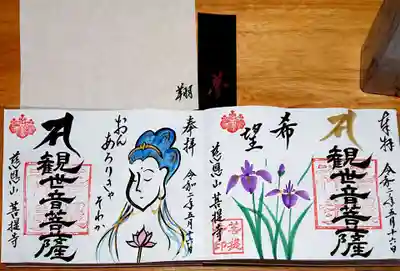 翔
奉拝
令和二年五月十六日
観世音菩薩
希
望
慈恩山 菩提寺
菩提
奉拝
令和二年五月十六日
おん
あろりきゃ
そわか
観世音菩薩
慈恩山 菩提寺